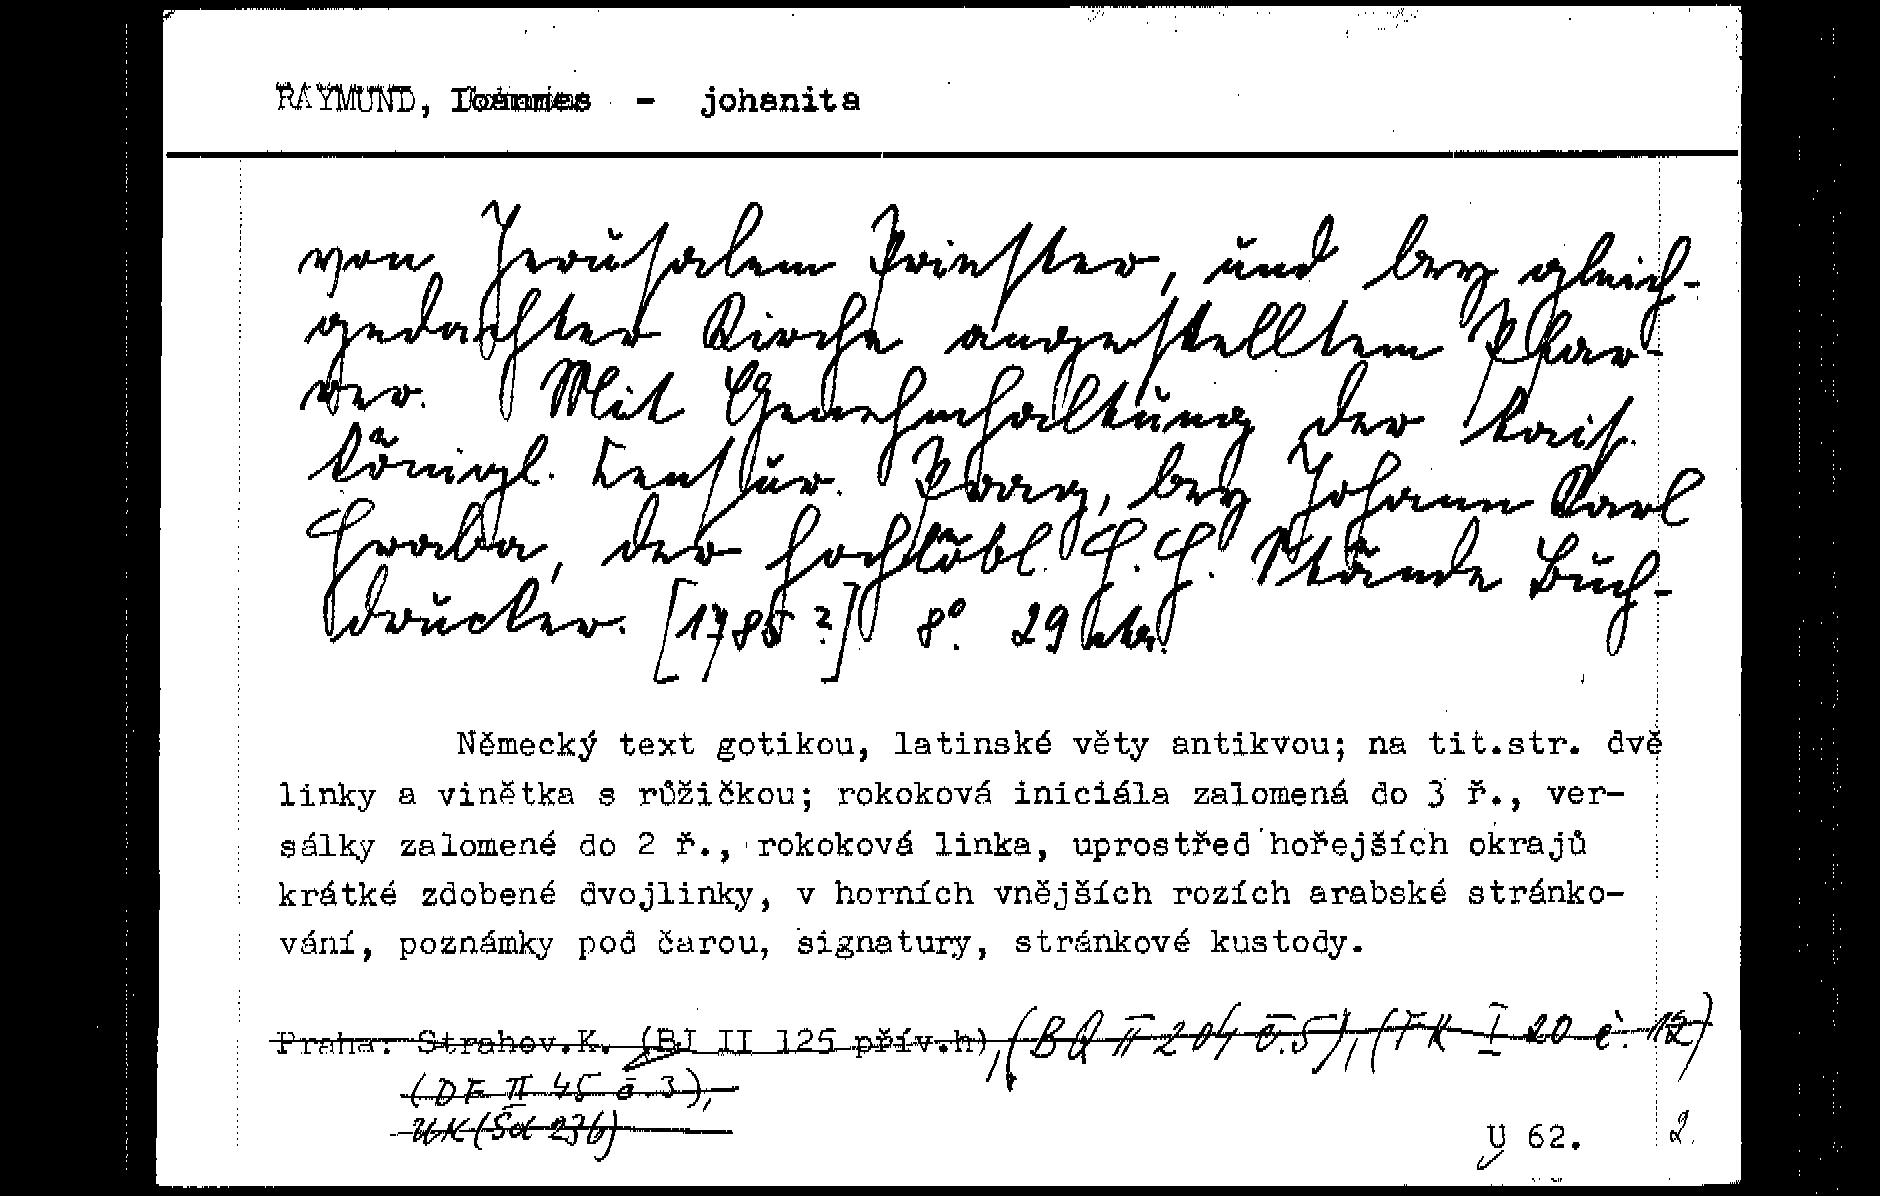 RAYMUND, Ioannes - johanita
von Jerusalem Priester, und bey gleich-
gedachter Kirche angestelltem Pfar-
rer. Mit Genehmhaltung der kais.
königl. Censur. Prag, bey Johann Karl
Hraba, der hochlöbl. H. H. Stände Buch-
drucker. [1785?] 8°. 29 str.
Německý text gotikou, latinské věty antikvou; na tit.str. dvě
linky a vinětka s růžičkou; rokoková iniciála zalomená do 3 ř., ver-
sálky zalomené do 2 ř., rokoková linka, uprostřed hořejších okrajů
krátké zdobené dvojlinky, v horních vnějších rozích arabské stránko-
vání, poznámky pod čarou, signatury, stránkové kustody.
Praha: Strahov.K. (BJ II 125 přív.h), (BQ II 204 č.5), (FK I 20 č. 12)
(DF II 45 č.3),
UK (Šd 236)
U 62. 2.